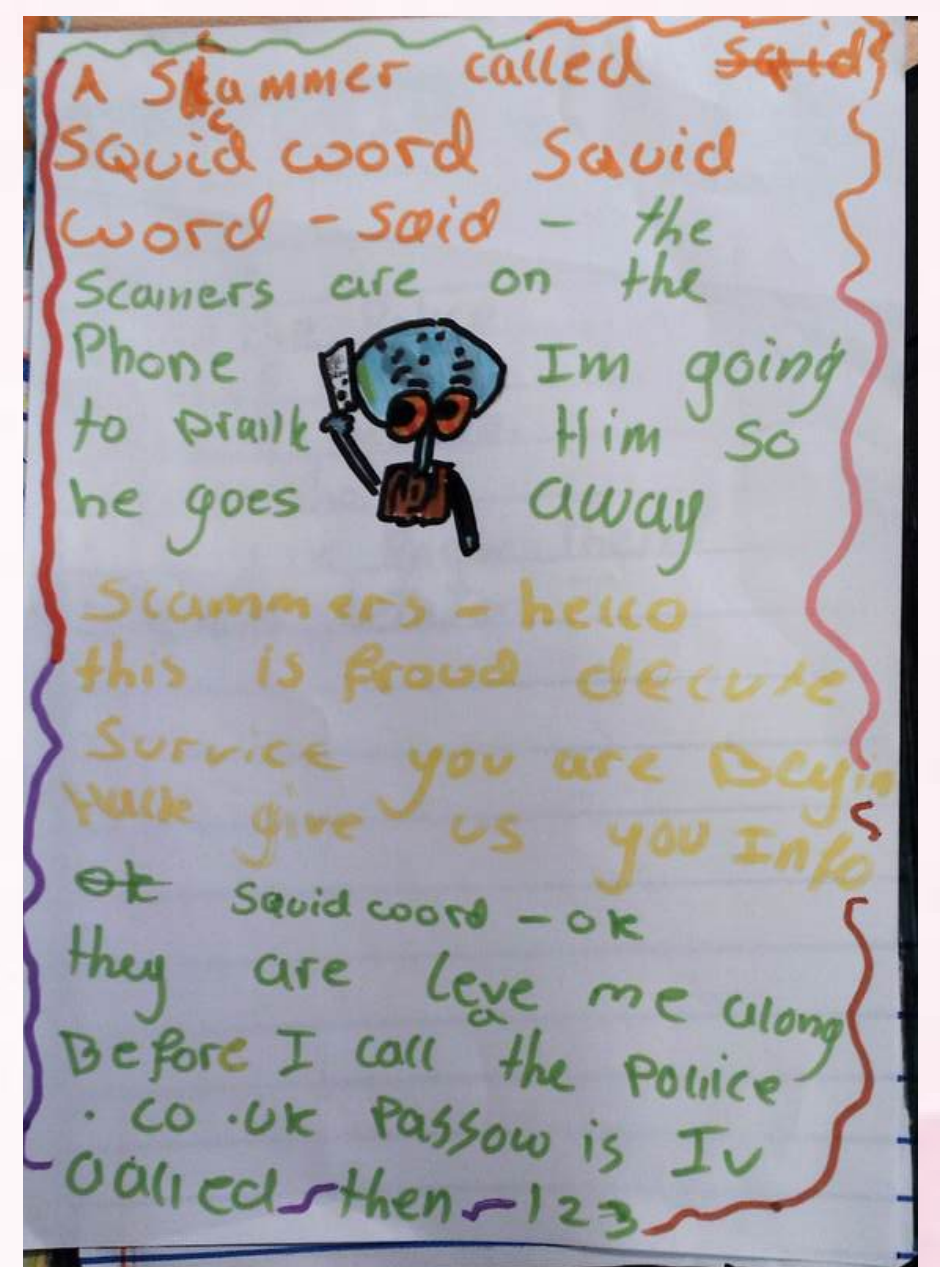 A Scammer called sqid
Squid word Squid
word - said - the
Scamers are on the
Phone Im going
to prank Him so
he goes away
Scammers - hello
this is froud decute
Survice you are Begin
Hack give us you Info
ok Squid coord - ok
they are leave me along
Before I call the Police
. co .uk Passow is Iv
Called then 123